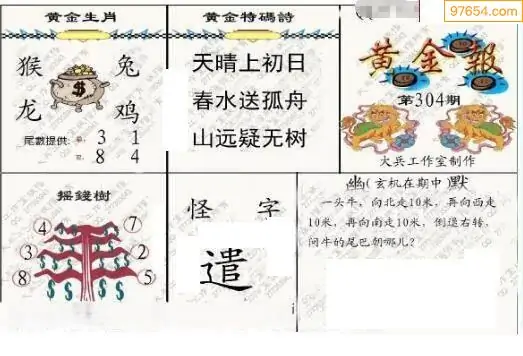 97654.com
黄金生肖
猴 兔
龙 鸡
尾數提供: 單: 3 1
雙: 8 4
黄金特碼詩
天晴上初日
春水送孤舟
山远疑无树
黄金報
第304期
火兵工作室制作
摇錢樹
4 7
3 2
8 5
怪 字
遣
幽(玄机在期中)默
一头牛，向北走10米，再向西走
10米，再向南走10米，倒退右转，
问牛的尾巴朝哪儿?